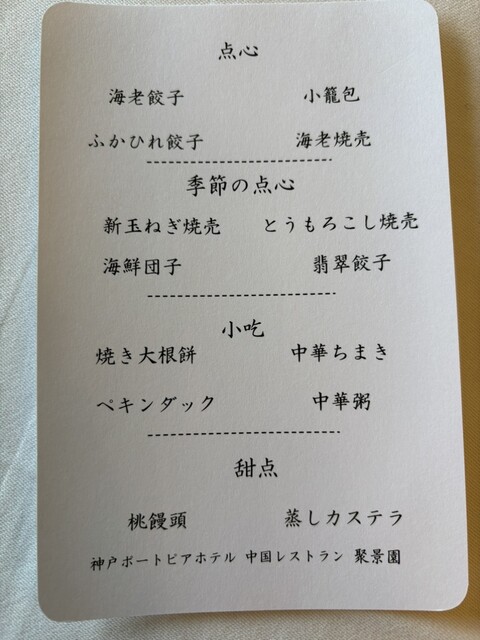 点心
海老餃子 小籠包
ふかひれ餃子 海老焼売
季節の点心
新玉ねぎ焼売 とうもろこし焼売
海鮮団子 翡翠餃子
小吃
焼き大根餅 中華ちまき
ペキンダック 中華粥
甜点
桃饅頭 蒸しカステラ
神戸ポートピアホテル 中国レストラン 聚景園